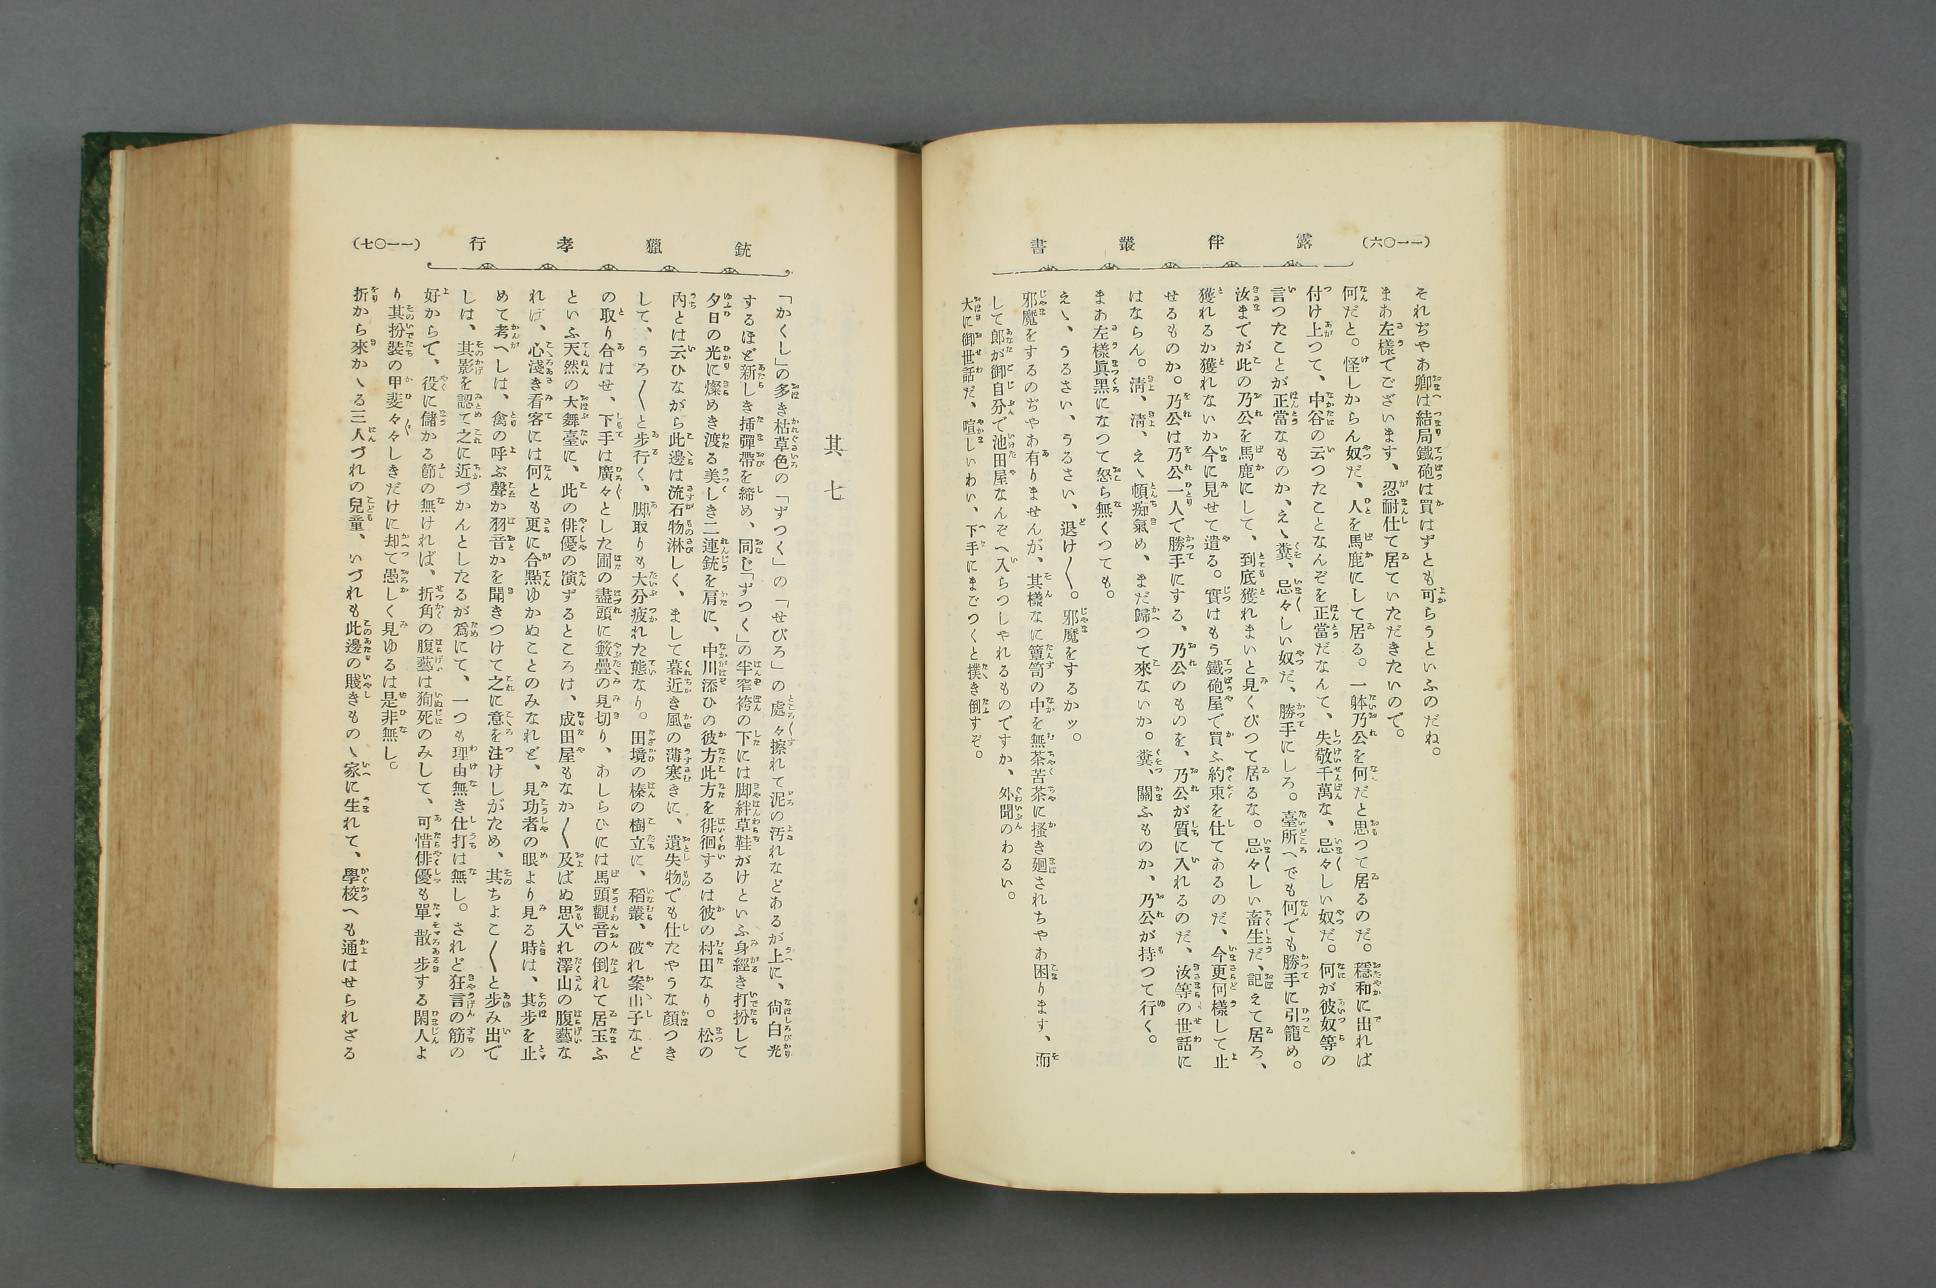 (一一〇六)
露伴叢書
それぢやあ卿は結局鐵砲は買はずとも可らうといふのだね。
まあ左樣でございます、忍耐仕て居ていただきたいので。
何だと。怪しからん奴だ、人を馬鹿にして居る。一躰乃公を何だと思つて居るのだ。穩和に出れば
付け上つて、中谷の云つたことなんぞを正當だなんて、失敬千萬な、忌々しい奴だ。何が彼奴等の
言つたことが正當なものか、えゝ糞、忌々しい奴だ、勝手にしろ。臺所へでも何でも勝手に引籠め。
汝までが此の乃公を馬鹿にして、到底獲れまいと見くびつて居るな。忌々しい畜生だ、記えて居ろ、
獲れるか獲れないか今に見せて遣る。實はもう鐵砲屋で買ふ約束を仕てあるのだ、今更何樣して止
せるものか。乃公は乃公一人で勝手にする、乃公のものを、乃公が質に入れるのだ、汝等の世話に
はならん。淸、淸、えゝ頓痴氣め、まだ歸つて來ないか。糞、關ふものか、乃公が持つて行く。
まあ左樣眞黑になつて怒ら無くつても。
えゝ、うるさい、うるさい、退け〳〵。邪魔をするかッ。
邪魔をするのぢやあ有りませんが、其樣なに簞笥の中を無茶苦茶に搔き廻されちやあ困ります、而
して郞が御自分で池田屋なんぞへ入らつしやれるものですか、外聞のわるい。
大に御世話だ、喧しいわい、下手にまごつくと撲き倒すぞ。
銃獵孝行
(一一〇七)
其七
「かくし」の多き枯草色の「ずつく」の「せびろ」の處々擦れて泥の汚れなどあるが上に、尙白光
するほど新しき挿彈帶を締め、同じ「ずつく」の半窄袴の下には脚絆草鞋がけといふ身經き打扮して
夕日の光に燦めき渡る美しき二連銃を肩に、中川添ひの彼方此方を徘徊するは彼の村田なり。松の
內とは云ひながら此邊は流石物淋しく、まして暮近き風の薄寒きに、遺失物でも仕たやうな顏つき
して、うろ〳〵と步行く、脚取りも大分疲れた態なり。田境の榛の樹立に、稻叢、破れ案山子など
の取り合はせ、下手は廣々とした圃の盡頭に籔疊の見切り、あしらひには馬頭觀音の倒れて居玉ふ
といふ天然の大舞臺に、此の俳優の演ずるところは、成田屋もなか〳〵及ばぬ思入れ澤山の腹藝な
れば、心淺き看客には何とも更に合點ゆかぬことのみなれど、見功者の眼より見る時は、其步を止
めて考へしは、禽の呼ぶ聲か羽音かを聞きつけて之に意を注けしがため、其ちよこ〳〵と步み出で
しは、其影を認て之に近づかんとしたるが爲にて、一つも理由無き仕打は無し。されど狂言の筋の
好からで、役に儲かる節の無ければ、折角の腹藝は狗死のみして、可惜俳優も單散步する閑人よ
り其扮裝の甲斐々々しきだけに却て愚しく見ゆるは是非無し。
折から來かゝる三人づれの兒童、いづれも此邊の賤きものゝ家に生れて、學校へも通はせられざる